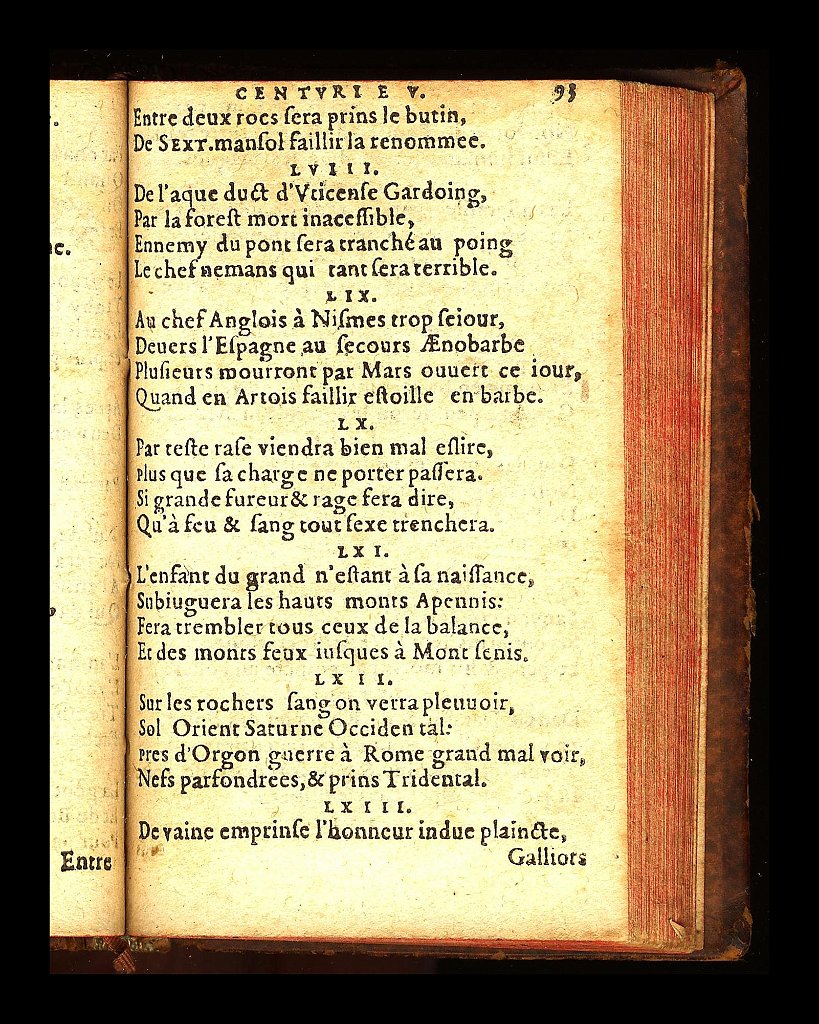 CENTVRIE V. 93
Entre deux rocs ſera prins le butin,
De SEXT.manſol faillir la renommee.
LVIII.
De l'aque duct d'Vticenſe Gardoing,
Par la foreſt mort inaceſſible,
Ennemy du pont ſera tranché au poing
Le chef nemans qui tant ſera terrible.
LIX.
Au chef Anglois à Niſmes trop ſeiour,
Deuers l'Eſpagne au ſecours Ænobarbe
Pluſieurs mourront par Mars ouuert ce iour,
Quand en Artois faillir eſtoille en barbe.
LX.
Par teſte raſe viendra bien mal eſlire,
Plus que ſa charge ne porter paſſera.
Si grande fureur & rage fera dire,
Qu'à feu & ſang tout ſexe trenchera.
LXI.
L'enfant du grand n'eſtant à ſa naiſſance,
Subiuguera les hauts monts Apennis:
Fera trembler tous ceux de la balance,
Et des monts feux iuſques à Mont ſenis.
LXII.
Sur les rochers ſang on verra pleuuoir,
Sol Orient Saturne Occiden tal:
Pres d'Orgon guerre à Rome grand mal voir,
Nefs parfondrees,& prins Tridental.
LXIII.
De vaine emprinſe l'honneur indue plaincte,
Galliots
Entre